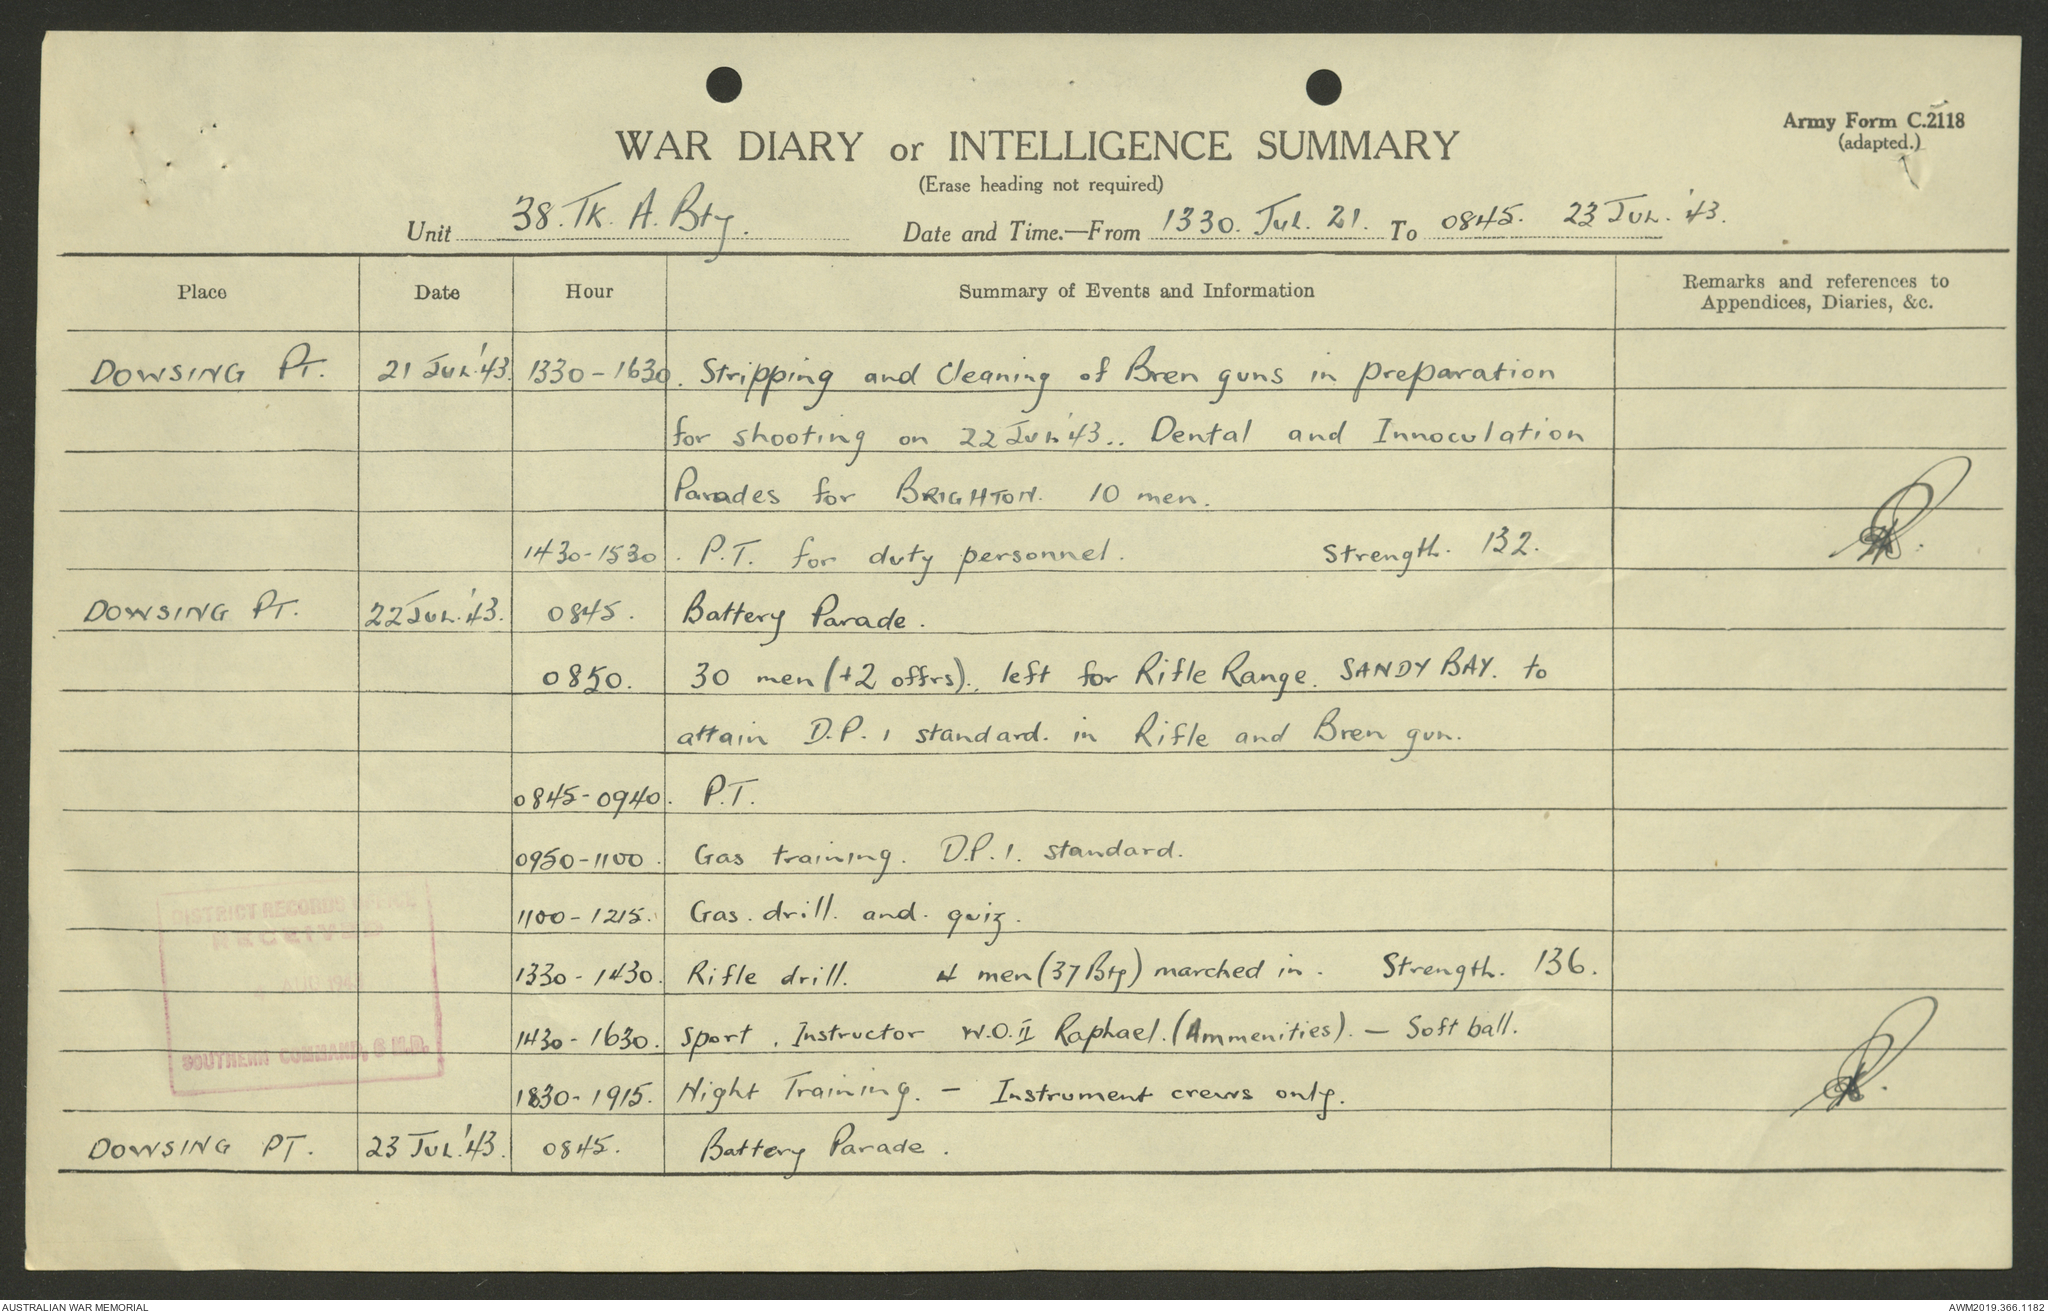 Army Form C.2118
(adapted.)
WAR DIARY or INTELLIGENCE SUMMARY
(Erase heading not required)
Unit 38. TK. A. Bty. Date and Time.—From 1330. JUL. 21. To 0845. 23 JUL. '43.
Place Date Hour Summary of Events and Information Remarks and references to Appendices, Diaries, &c.
DOWSING PT. 21 JUL.'43. 1330-1630. Stripping and Cleaning of Bren guns in preparation
for shooting on 22 JUL '43.. Dental and Innoculation
Parades for BRIGHTON. 10 men.
1430-1530. P.T. for duty personnel. Strength. 132.
DOWSING PT. 22 JUL.'43. 0845. Battery Parade.
0850. 30 men (+2 offrs). left for Rifle Range. SANDY BAY. to
attain D.P. 1 standard. in Rifle and Bren gun.
0845-0940. P.T.
0950-1100. Gas training. D.P. 1. standard.
1100-1215. Gas. drill. and. quiz.
1330-1430. Rifle drill. 4 men (37 Bty) marched in. Strength. 136.
1430-1630. Sport. Instructor W.O. II Raphael. (Ammenities). — Soft ball.
1830-1915. Night Training. — Instrument crews only.
DOWSING PT. 23 JUL.'43. 0845. Battery Parade.
DISTRICT RECORDS OFFICE
RECEIVED
AUG
SOUTHERN COMMAND, 6 M.D.
AUSTRALIAN WAR MEMORIAL AWM2019.366.1182